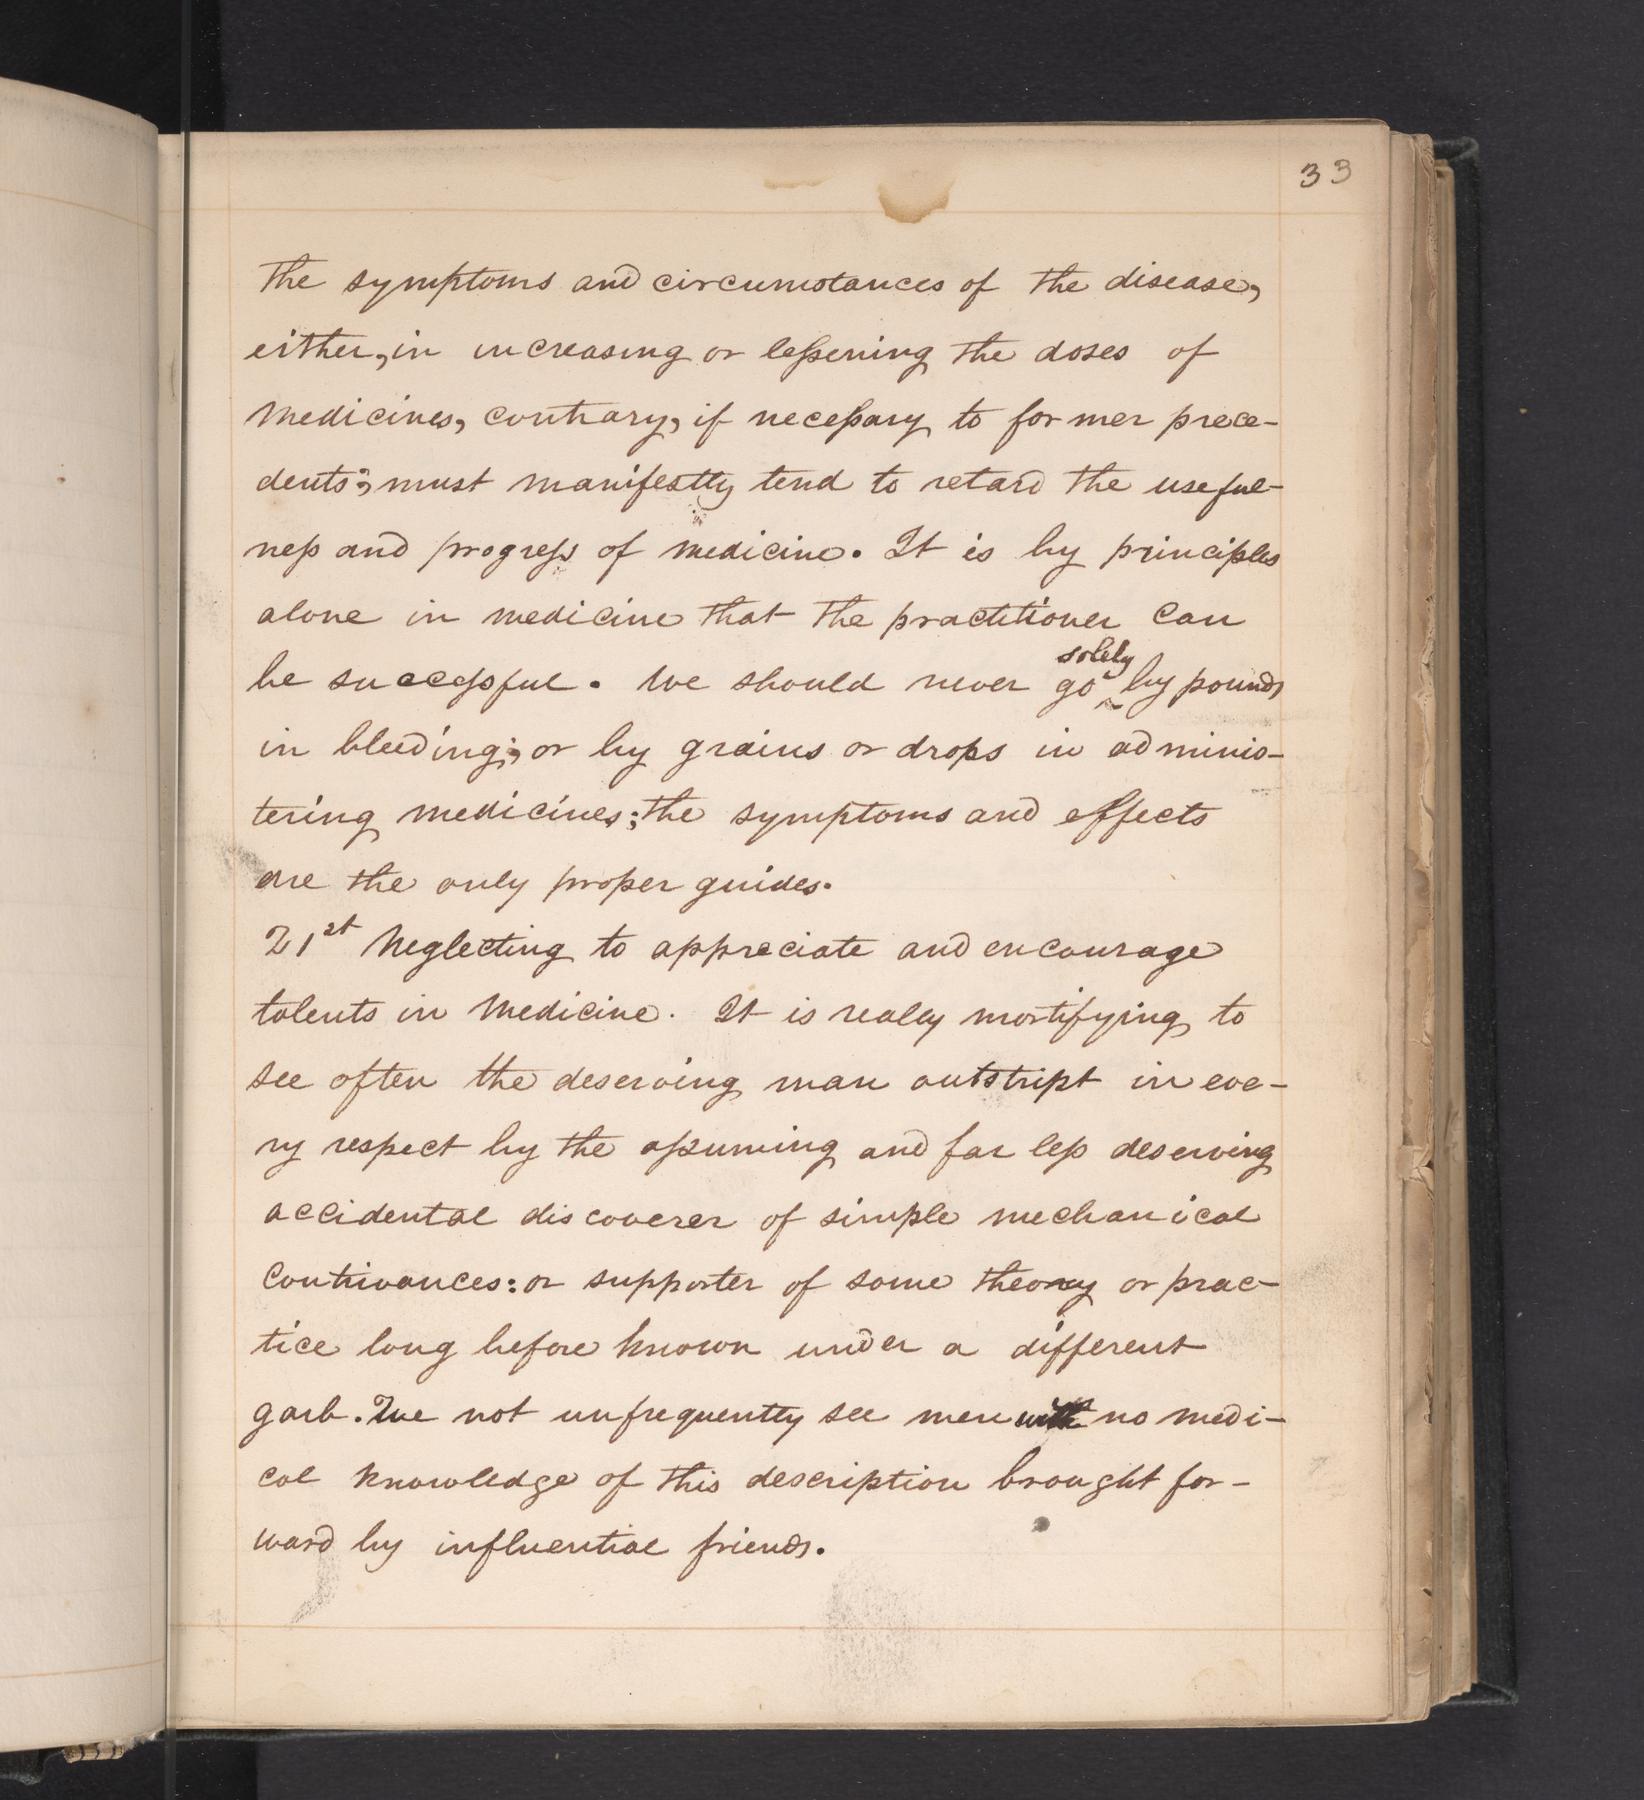 33
the symptoms and circumstances of the disease,
either, in increasing or lessening the doses of
medicines, contrary, if necessary to former prece-
dents; must manifestly tend to retard the useful-
ness and progress of medicine. It is by principles
alone in medicine that the practitioner can
be successful. We should never go solely by pounds
in bleeding; or by grains or drops in adminis-
tering medicines; the symptoms and effects
are the only proper guides.
21st Neglecting to appreciate and encourage
talents in Medicine. It is really mortifying to
see often the deserving man outstript in eve-
ry respect by the assuming and far less deserving
accidental discoverer of simple mechanical
contrivances: or supporter of some theory or prac-
tice long before known under a different
garb. We not unfrequently see men with no medi-
cal knowledge of this description brought for-
ward by influential friends.